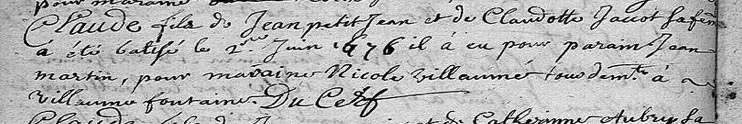 pour maraine
Claude fils de Jean petit Jean et de Claudotte Jacot sa fem̃e
a été batisé le 2me Juin 1676 il à eu pour parain Jean
martin, pour maraine Nicole villaumé tous demts à
villaume fontaine. Du Cerf
Claude fils de J et de Catherinne Aubry sa